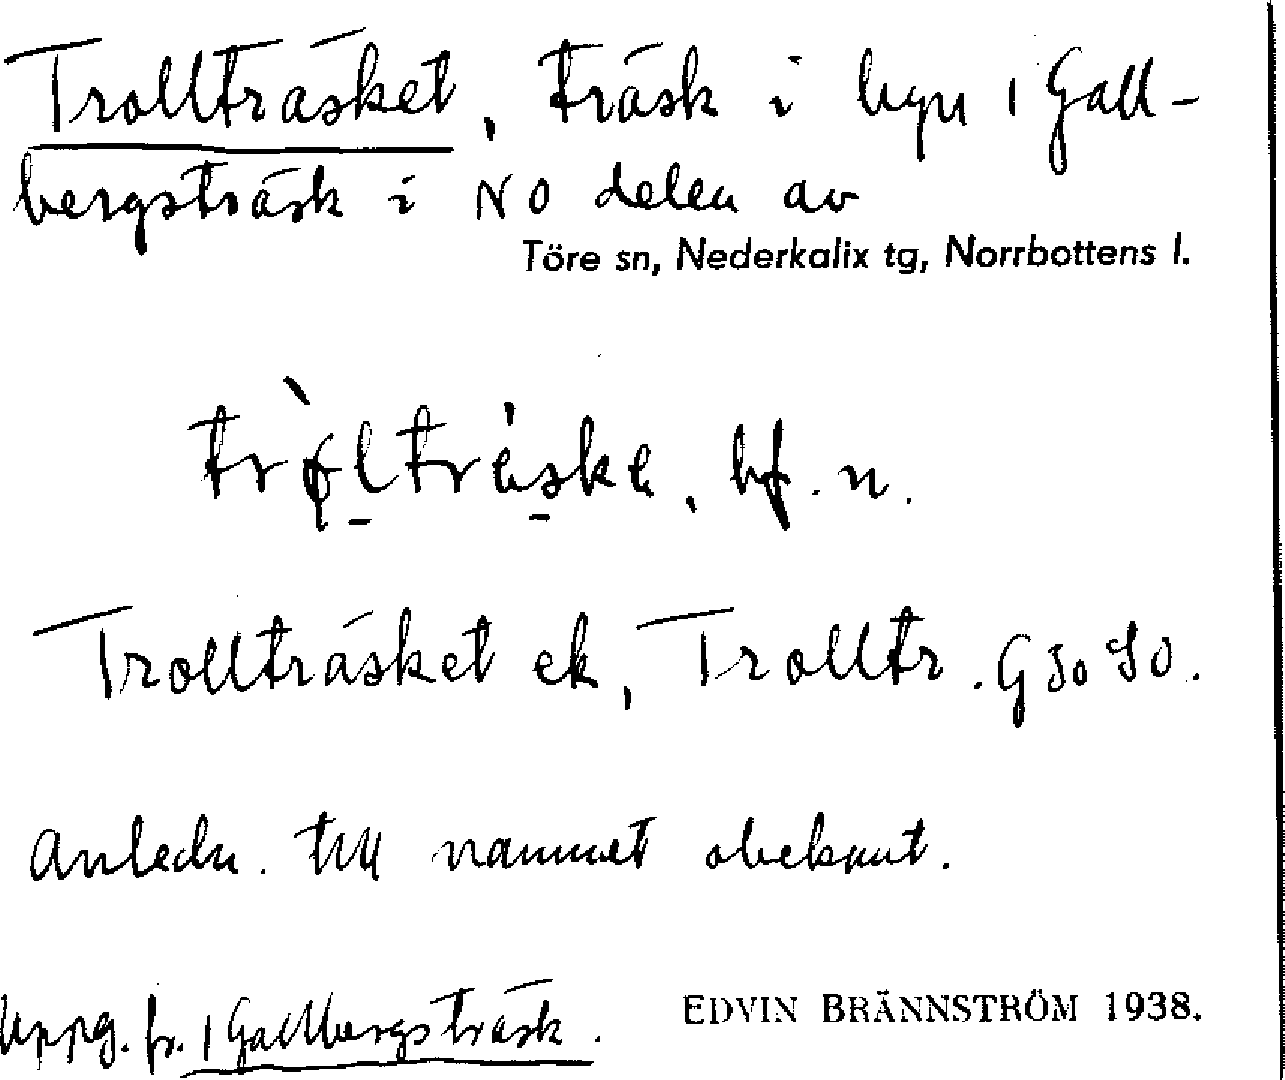 Trollträsket, träsk i byn 1 Gall-
bergsträsk i NO delen av
Töre sn, Nederkalix tg, Norrbottens l.
bf. n.
Trollträsket ek, Trolltr. GSo SO.
Anledn. till namnet obekant.
Uppg. fr. 1 Gallbergsträsk.
EDVIN BRÄNNSTRÖM 1938.